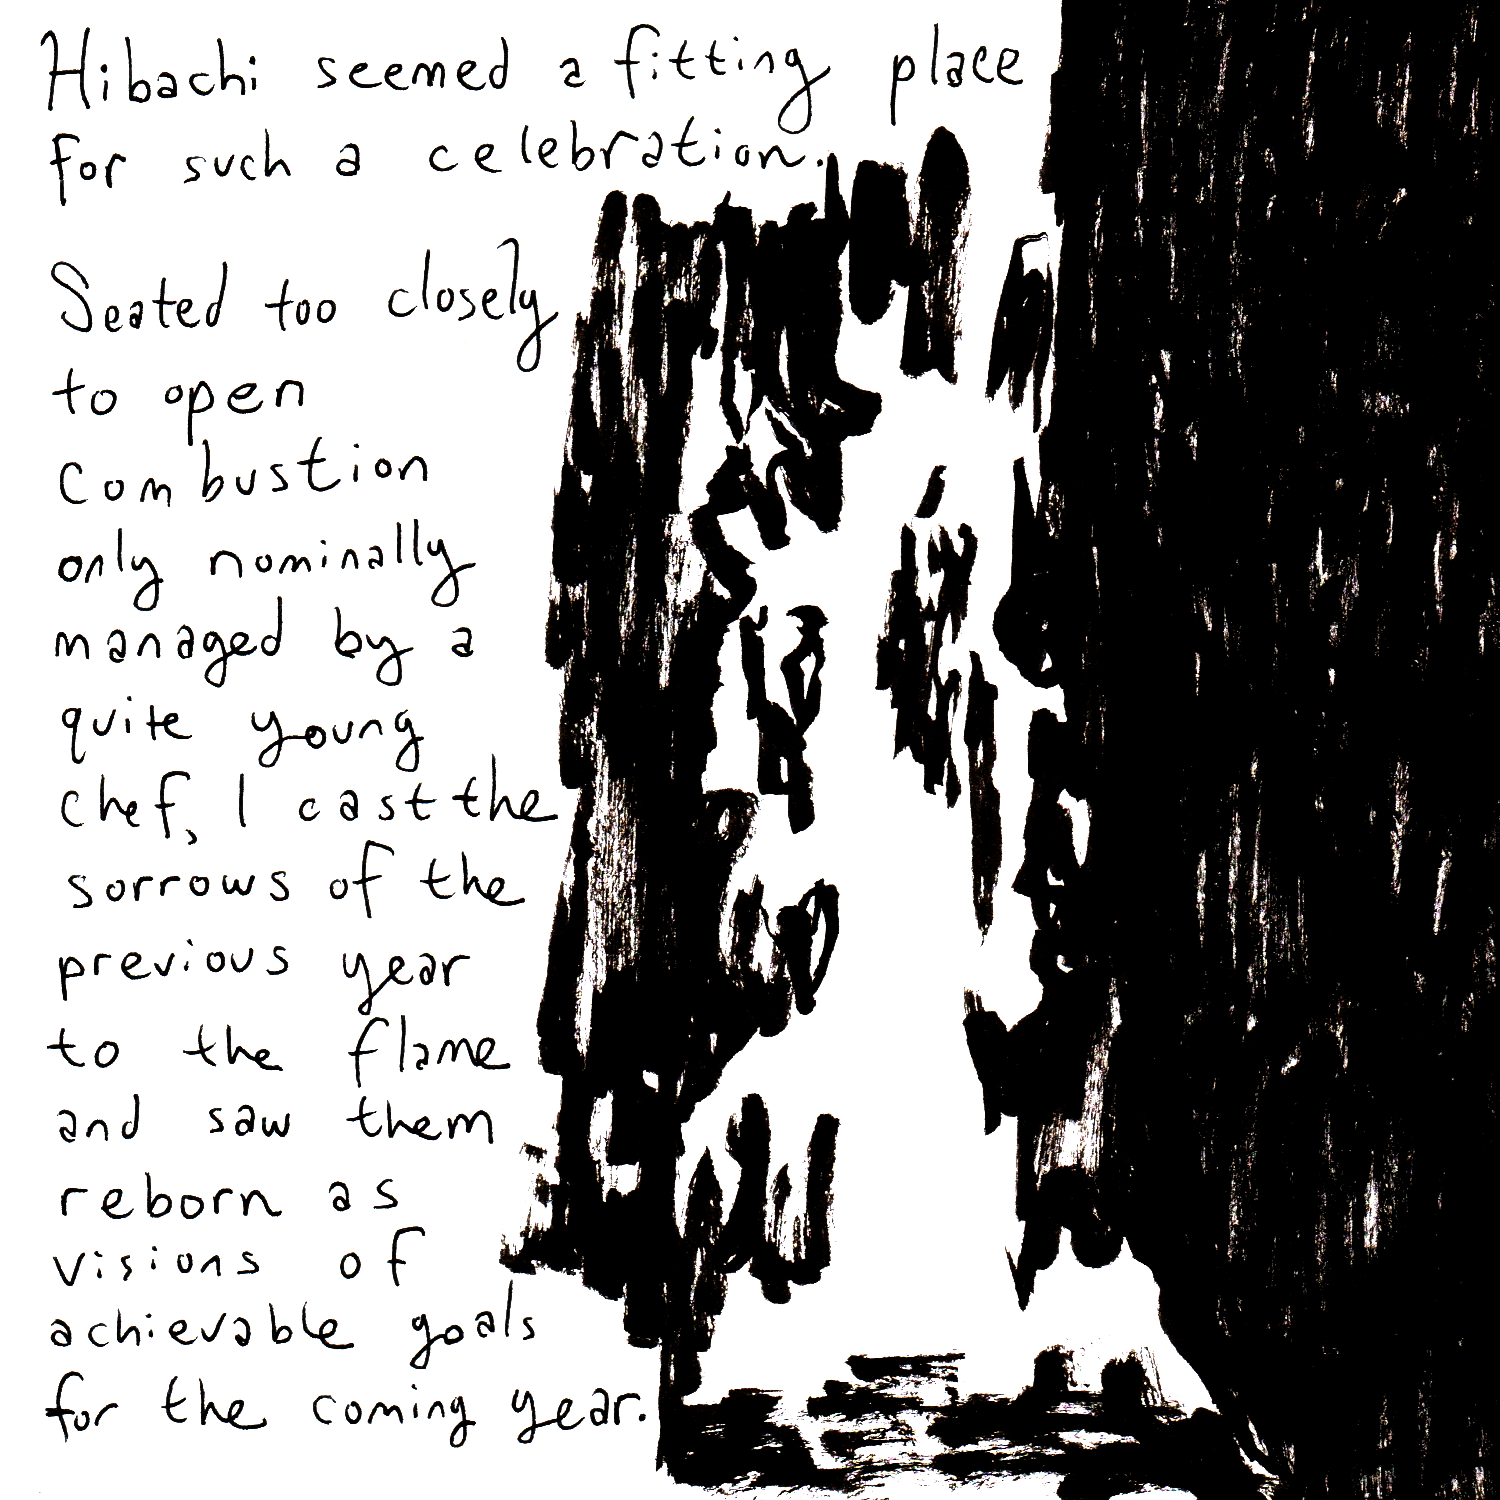 Hibachi seemed a fitting place
for such a celebration.
Seated too closely
to open
combustion
only nominally
managed by a
quite young
chef, I cast the
sorrows of the
previous year
to the flame
and saw them
reborn as
visions of
achievable goals
for the coming year.